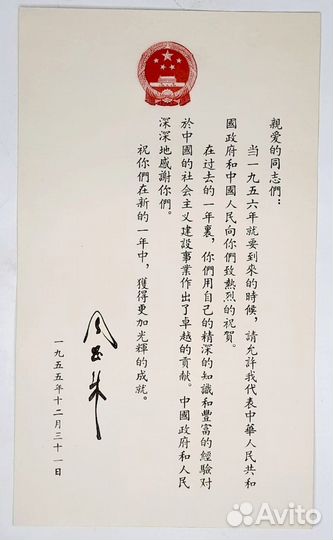 親爱的同志們：
当一九五六年就要到來的時候，請允許我代表中華人民共和
國政府和中國人民向你們致熱烈的祝賀。
在过去的一年裏，你們用自己的精深的知識和豐富的經驗对
於中國的社会主义建設事業作出了卓越的貢献。中國政府和人民
深深地感謝你們。
祝你們在新的一年中，獲得更加光輝的成就。
一九五五年十二月三十一日
Avito